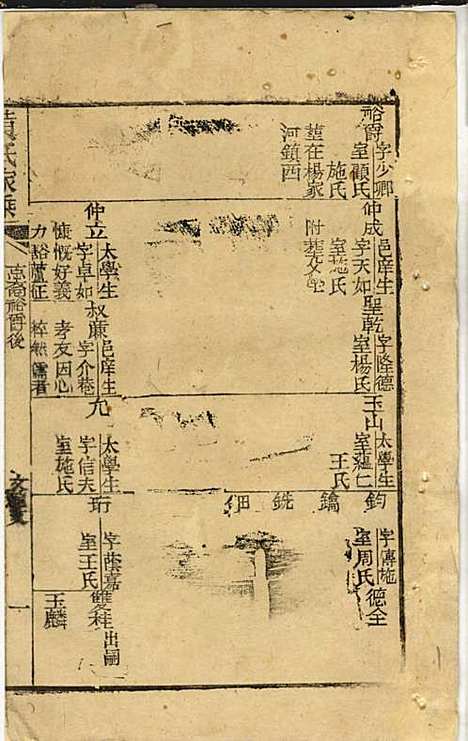 裕爵
字少卿
室顧氏
施氏
塟在楊家
河鎮西
仲成
邑庠生
字天如
室施氏
附塟父
聖乾
字隆德
室楊氏
玉山
太學生
室
王氏
鈞
鑰
銑
鈿
字傳施
室周氏
德全
仲立
太學生
字卓如
慷慨好義
力豁蘆征
叔廉
邑庠生
字介菴
孝友因心
粹然儒者
九
太學生
字信夫
室施氏
珩
字蔭嘉
室王氏
雙桂
出嗣
玉麟
黃氏家乘
裕爵後
一